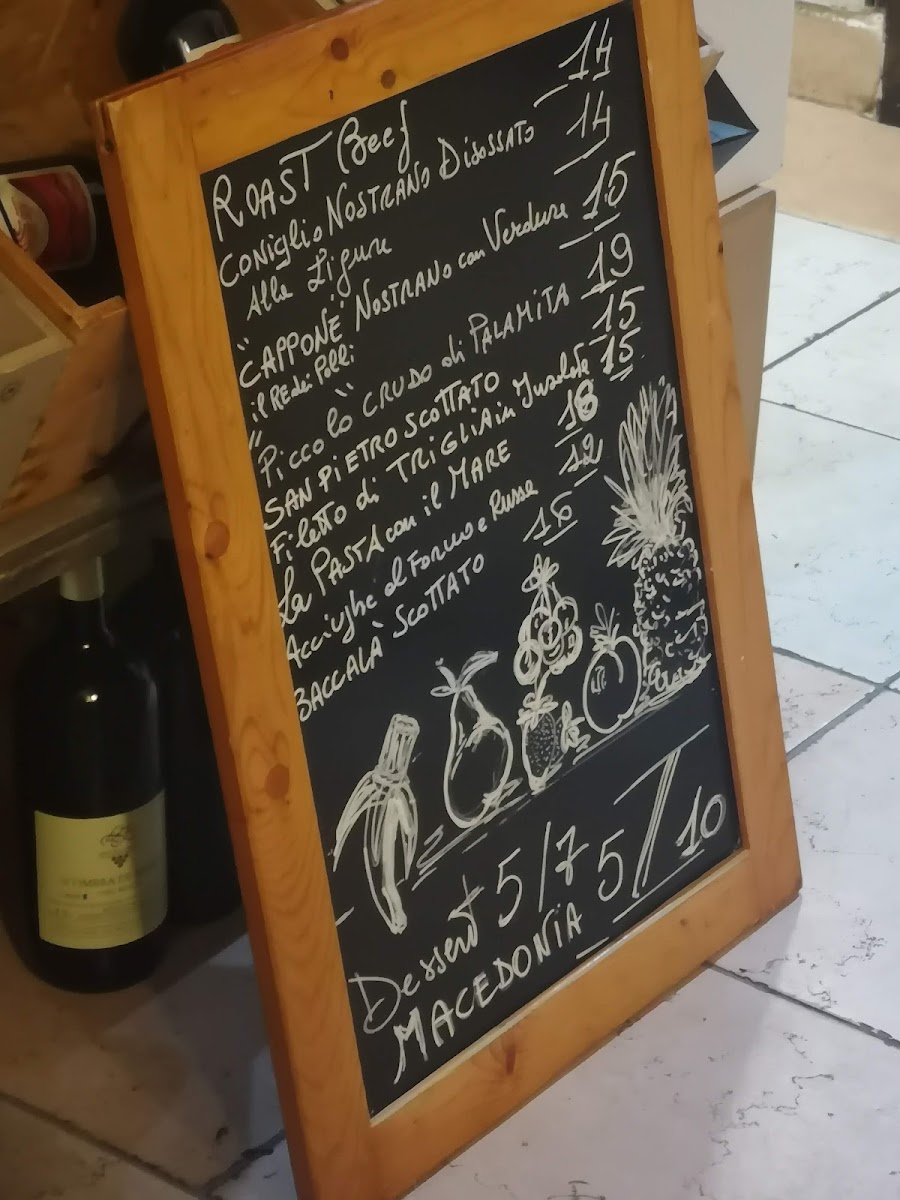 ROAST Beef 14
CONIGLIO NOSTRANO DISOSSATO 14
Alla Ligure
"CAPPONE" NOSTRANO con Verdure 15
il RE dei Polli
"Piccolo" CRUDO di PALAMITA 19
SAN PIETRO SCOTTATO 15
Filetto di TRIGLIA in Insalata 15
La PASTA con il MARE 18
Acciughe al Forno e Russe 12
BACCALÀ SCOTTATO 16
Dessert 5/7
MACEDONIA 5 // 10